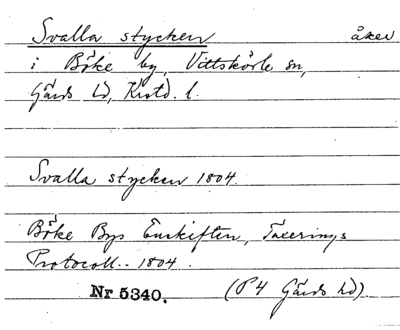 Svalla stycken åker
i Böke by, Vittskövle sn,
Gärds hd, Krstd. l.
Svalla stycken 1804.
Böke Bys Enskiften, Taxerings
Protocoll.. 1804.
Nr 5340. (P4 Gärds hd).